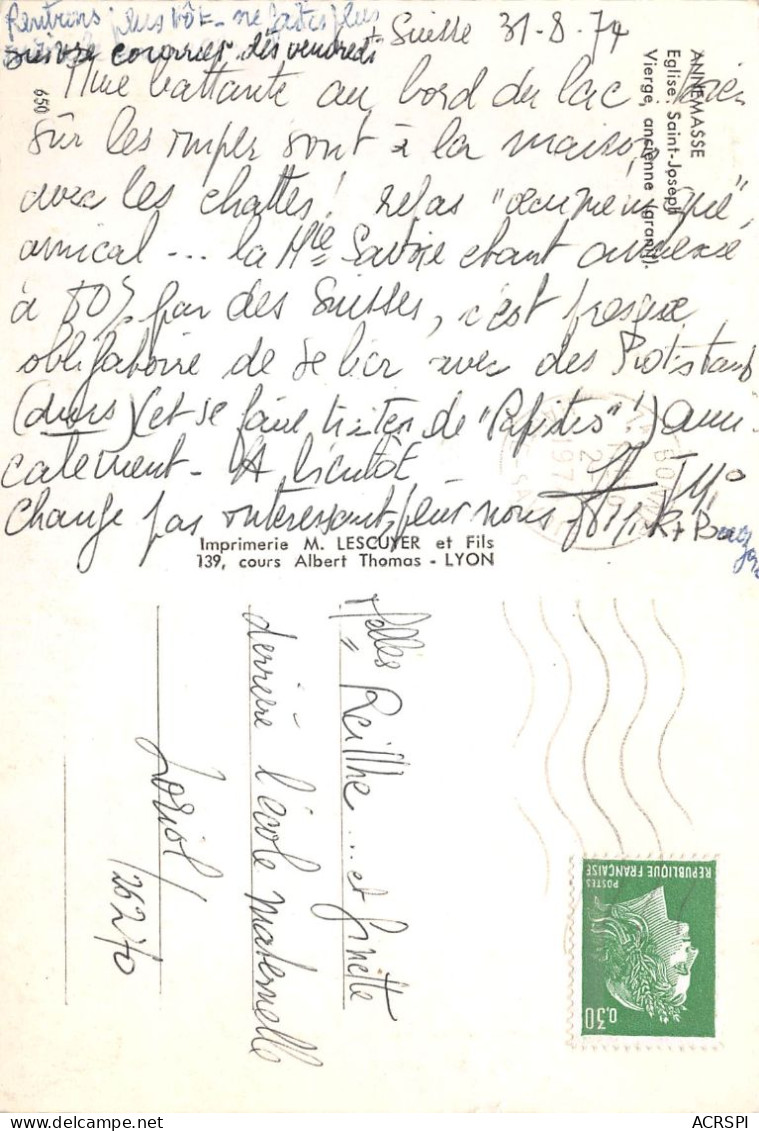 Rentrons plus tôt - ne faites plus
suivre courrier dès vendredi
Suisse 31-8-74
650
ANNEMASSE
Eglise Saint-Joseph
Vierge, ancienne (granit).
battante au bord du lac. bien
sûr les imper sont à la maison
avec les chattes! relas "oecuménique",
amical ... la Hte Savoie étant annexée
à 80% par des Suisses, c'est presque
obligatoire de se lier avec des Protestants
(durs) (et se faire traiter de "Papistes"!) ami-
calement - A bientôt
Change pas intéressant pour nous
Imprimerie M. LESCUYER et Fils
139, cours Albert Thomas - LYON
Melles Reilhe ... et Ginette
derrière l'école maternelle
Loriol
26270
POSTES
REPUBLIQUE FRANÇAISE
0,30
ACRSPI